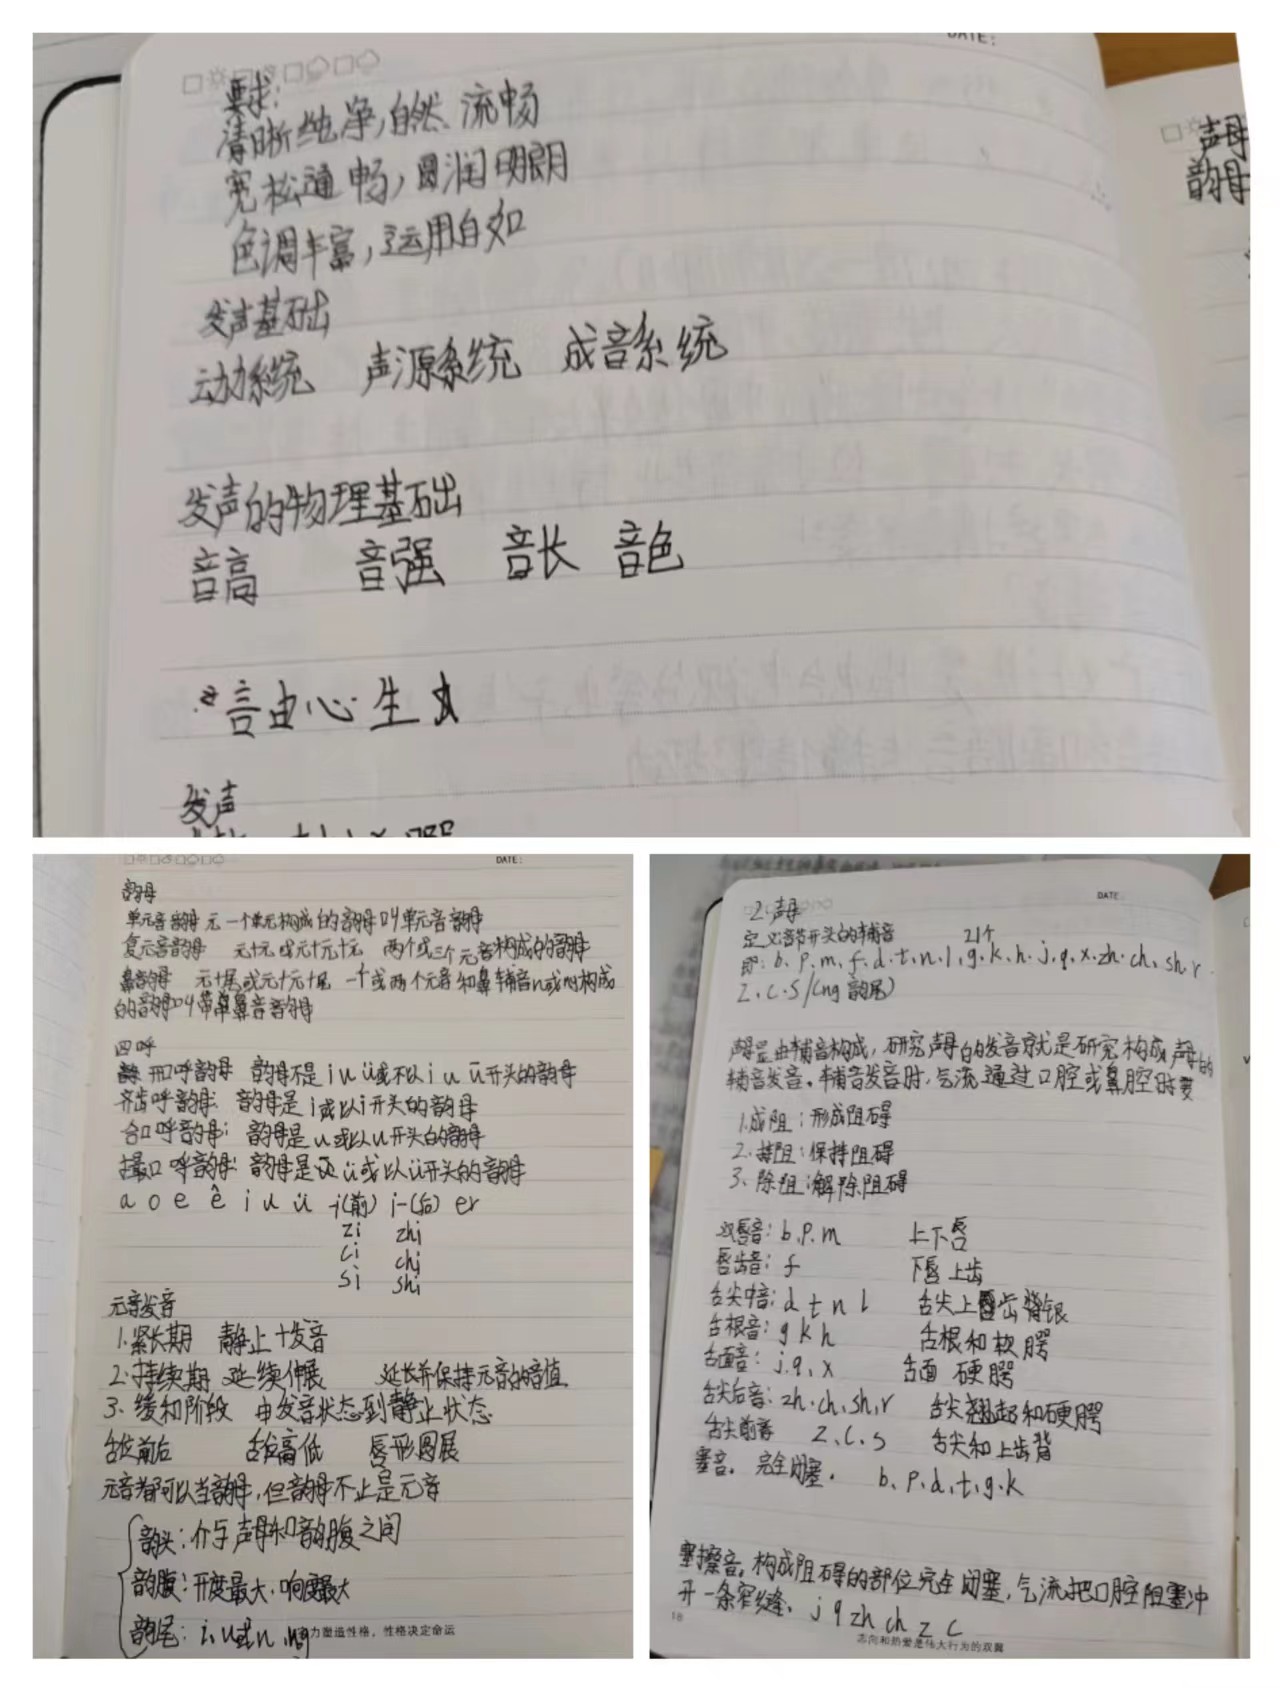 DATE:
要求:
清晰纯净,自然、流畅
宽松通畅,圆润明朗
色调丰富,运用自如
发声基础
动力系统 声源系统 成音系统
发声的物理基础
音高 音强 音长 音色
言由心生
发声
声母
韵母
DATE:
韵母
单元音韵母 元 一个单元构成的韵母叫单元音韵母
复元音韵母 元+元或元+元+元 两个或三个元音构成的韵母
鼻韵母 元+尾或元+元+尾 一个或两个元音和鼻辅音n或ng构成
的韵母叫带鼻音韵母
四呼
开口呼韵母 韵母不是i u ü或不以i u ü开头的韵母
齐齿呼韵母: 韵母是i或以i开头的韵母
合口呼韵母: 韵母是u或以u开头的韵母
撮口呼韵母: 韵母是ü或以ü开头的韵母
a o e ê i u ü -i(前) i-(后) er
zi zhi
ci chi
si shi
元音发音
1.紧长期 静止+发音
2.持续期 延续伸展 延长并保持元音的音值.
3、缓和阶段 由发音状态到静止状态
舌位前后 舌位高低 唇形圆展
元音都可以当韵母,但韵母不止是元音
韵头:介与声母和韵腹之间
韵腹:开度最大,响度最大
韵尾: i、u或n、ng
力塑造性格,性格决定命运
DATE:
2.声母
定义音节开头的辅音 21个
即: b、p、m、f、d、t、n、l、g、k、h、j、q、x、zh、ch、sh、r、
z、c、s/(ng 韵尾)
声母是由辅音构成,研究声母的发音就是研究构成声母的
辅音发音。辅音发音时,气流通过口腔或鼻腔时要
1.成阻:形成阻碍
2.持阻:保持阻碍
3、除阻:解除阻碍
双唇音: b、p、m 上下唇
唇齿音: f 下唇 上齿
舌尖中音: d t n l 舌尖上齿背龈
舌根音: g k h 舌根和软腭
舌面音: j、q、x 舌面 硬腭
舌尖后音: zh、ch、sh、r 舌尖翘起和硬腭
舌尖前音 z、c、s 舌尖和上齿背
塞音。完全闭塞。 b、p、d、t、g、k
塞擦音。构成阻碍的部位完全闭塞,气流把口腔阻塞冲
开一条窄缝。 j q zh ch z c
18
志向和热爱是伟大行为的双翼